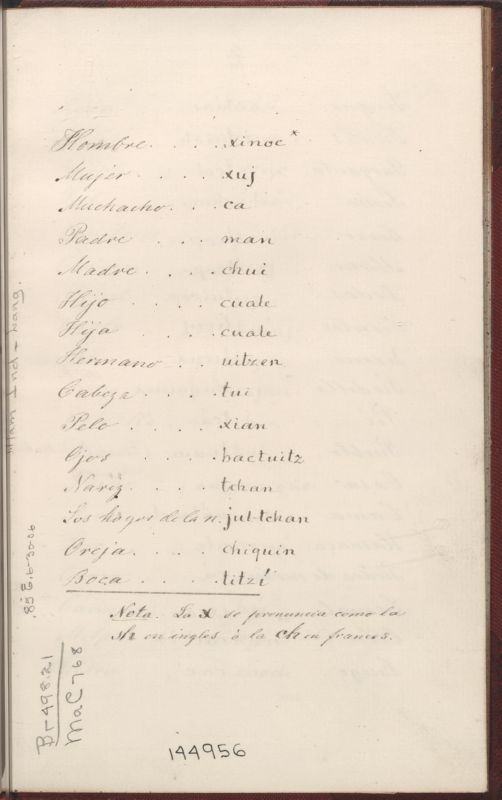 Hombre . . . . xinoc*
Mujer . . . . xuj
Muchacho . . . ca
Padre . . . . man
Madre . . . . chui
Hijo . . . . cuale
Hija . . . . cuale
Hermano . . uitzen
Cabeza . . . tui
Pelo . . . . xian
Ojos . . . . hactuitz
Nariz . . . . tchan
Los hoyos de la n. jul-tchan
Oreja . . . . chiquin
Boca . . . . titzí
Nota. La x se pronuncia como la
sh en ingles ò la ch en frances.
Mam Ind - Lang.
.85 6.6-30-06
Br-498.21
MaC768
144956